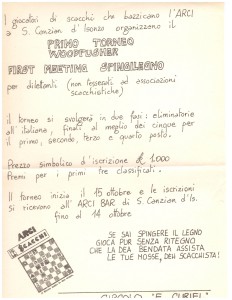 I giocatori di scacchi che bazzicano l'ARCI
a S. Canzian d'Isonzo organizzano il
PRIMO TORNEO
WOODPUSHER
FIRST MEETING SPINGILEGNO
per dilettanti (non tesserati ad associazioni
scacchistiche)
il torneo si svolgerà in due fasi: eliminatorie
all'italiana, finali al meglio dei cinque per
il primo, secondo, terzo e quarto posto.
Prezzo simbolico d'iscrizione £ 1.000
Premi per i primi tre classificati.
Il torneo inizia il 15 ottobre e le iscrizioni
si ricevono all'ARCI BAR di S. Canzian d'Is.
fino al 14 ottobre
ARCI
SCACCHI
SE SAI SPINGERE IL LEGNO
GIOCA PUR SENZA RITEGNO
CHE LA DEA BENDATA ASSISTA
LE TUE MOSSE, DEH SCACCHISTA!
CIRCOLO "E. CURIEL"